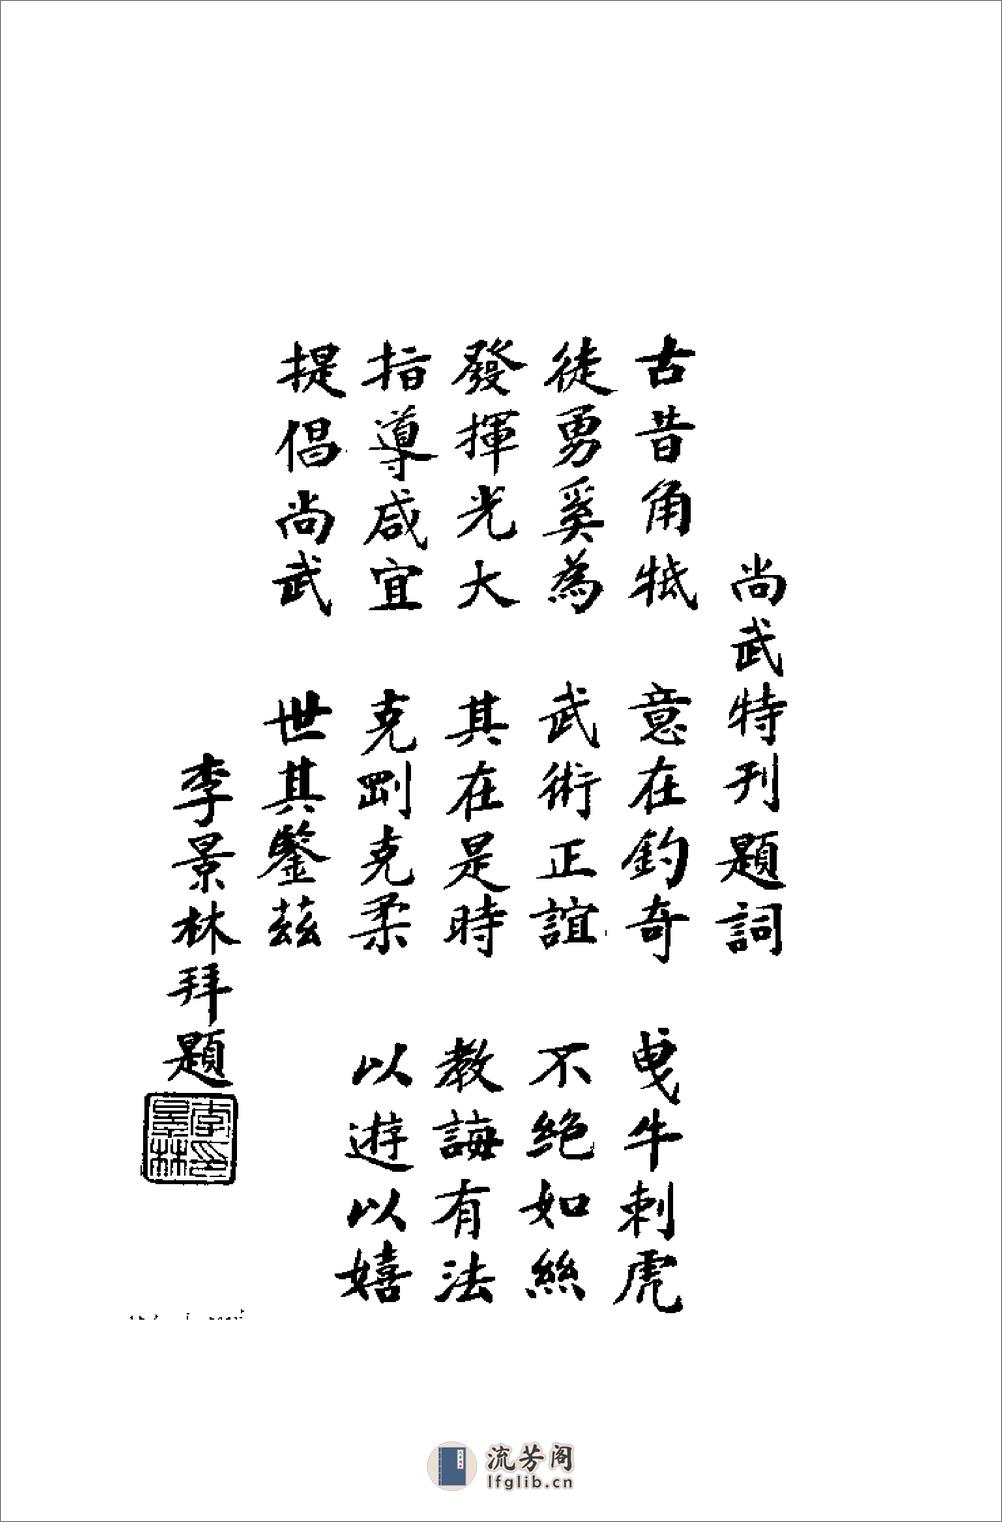 尚武特刊題詞
古昔角牴 意在釣奇 曳牛刺虎
徒勇奚為 武術正誼 不絕如絲
發揮光大 其在是時 教誨有法
指導咸宜 克剛克柔 以遊以嬉
提倡尚武 世其鑒茲
李景林拜題
李景林印
流芳阁
lfglib.cn